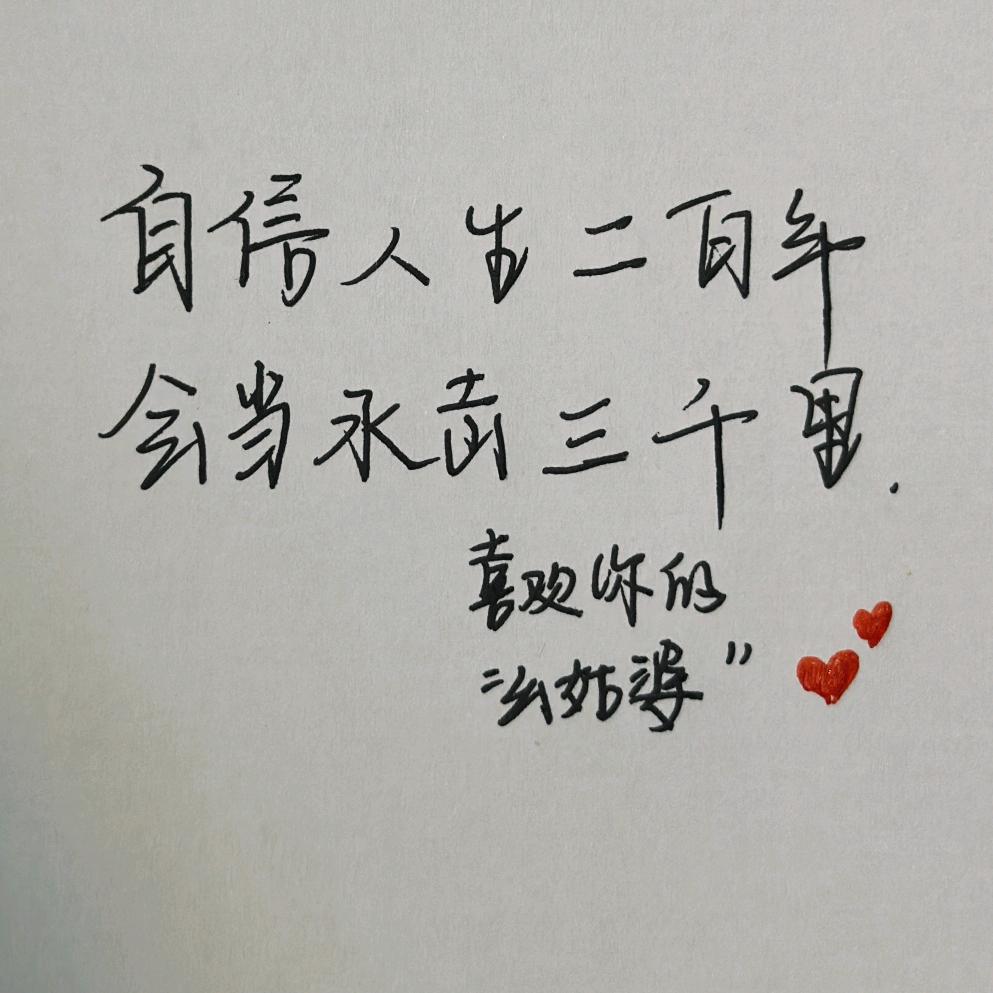 自信人生二百年
会当水击三千里.
喜欢你的
“幺姑婆”